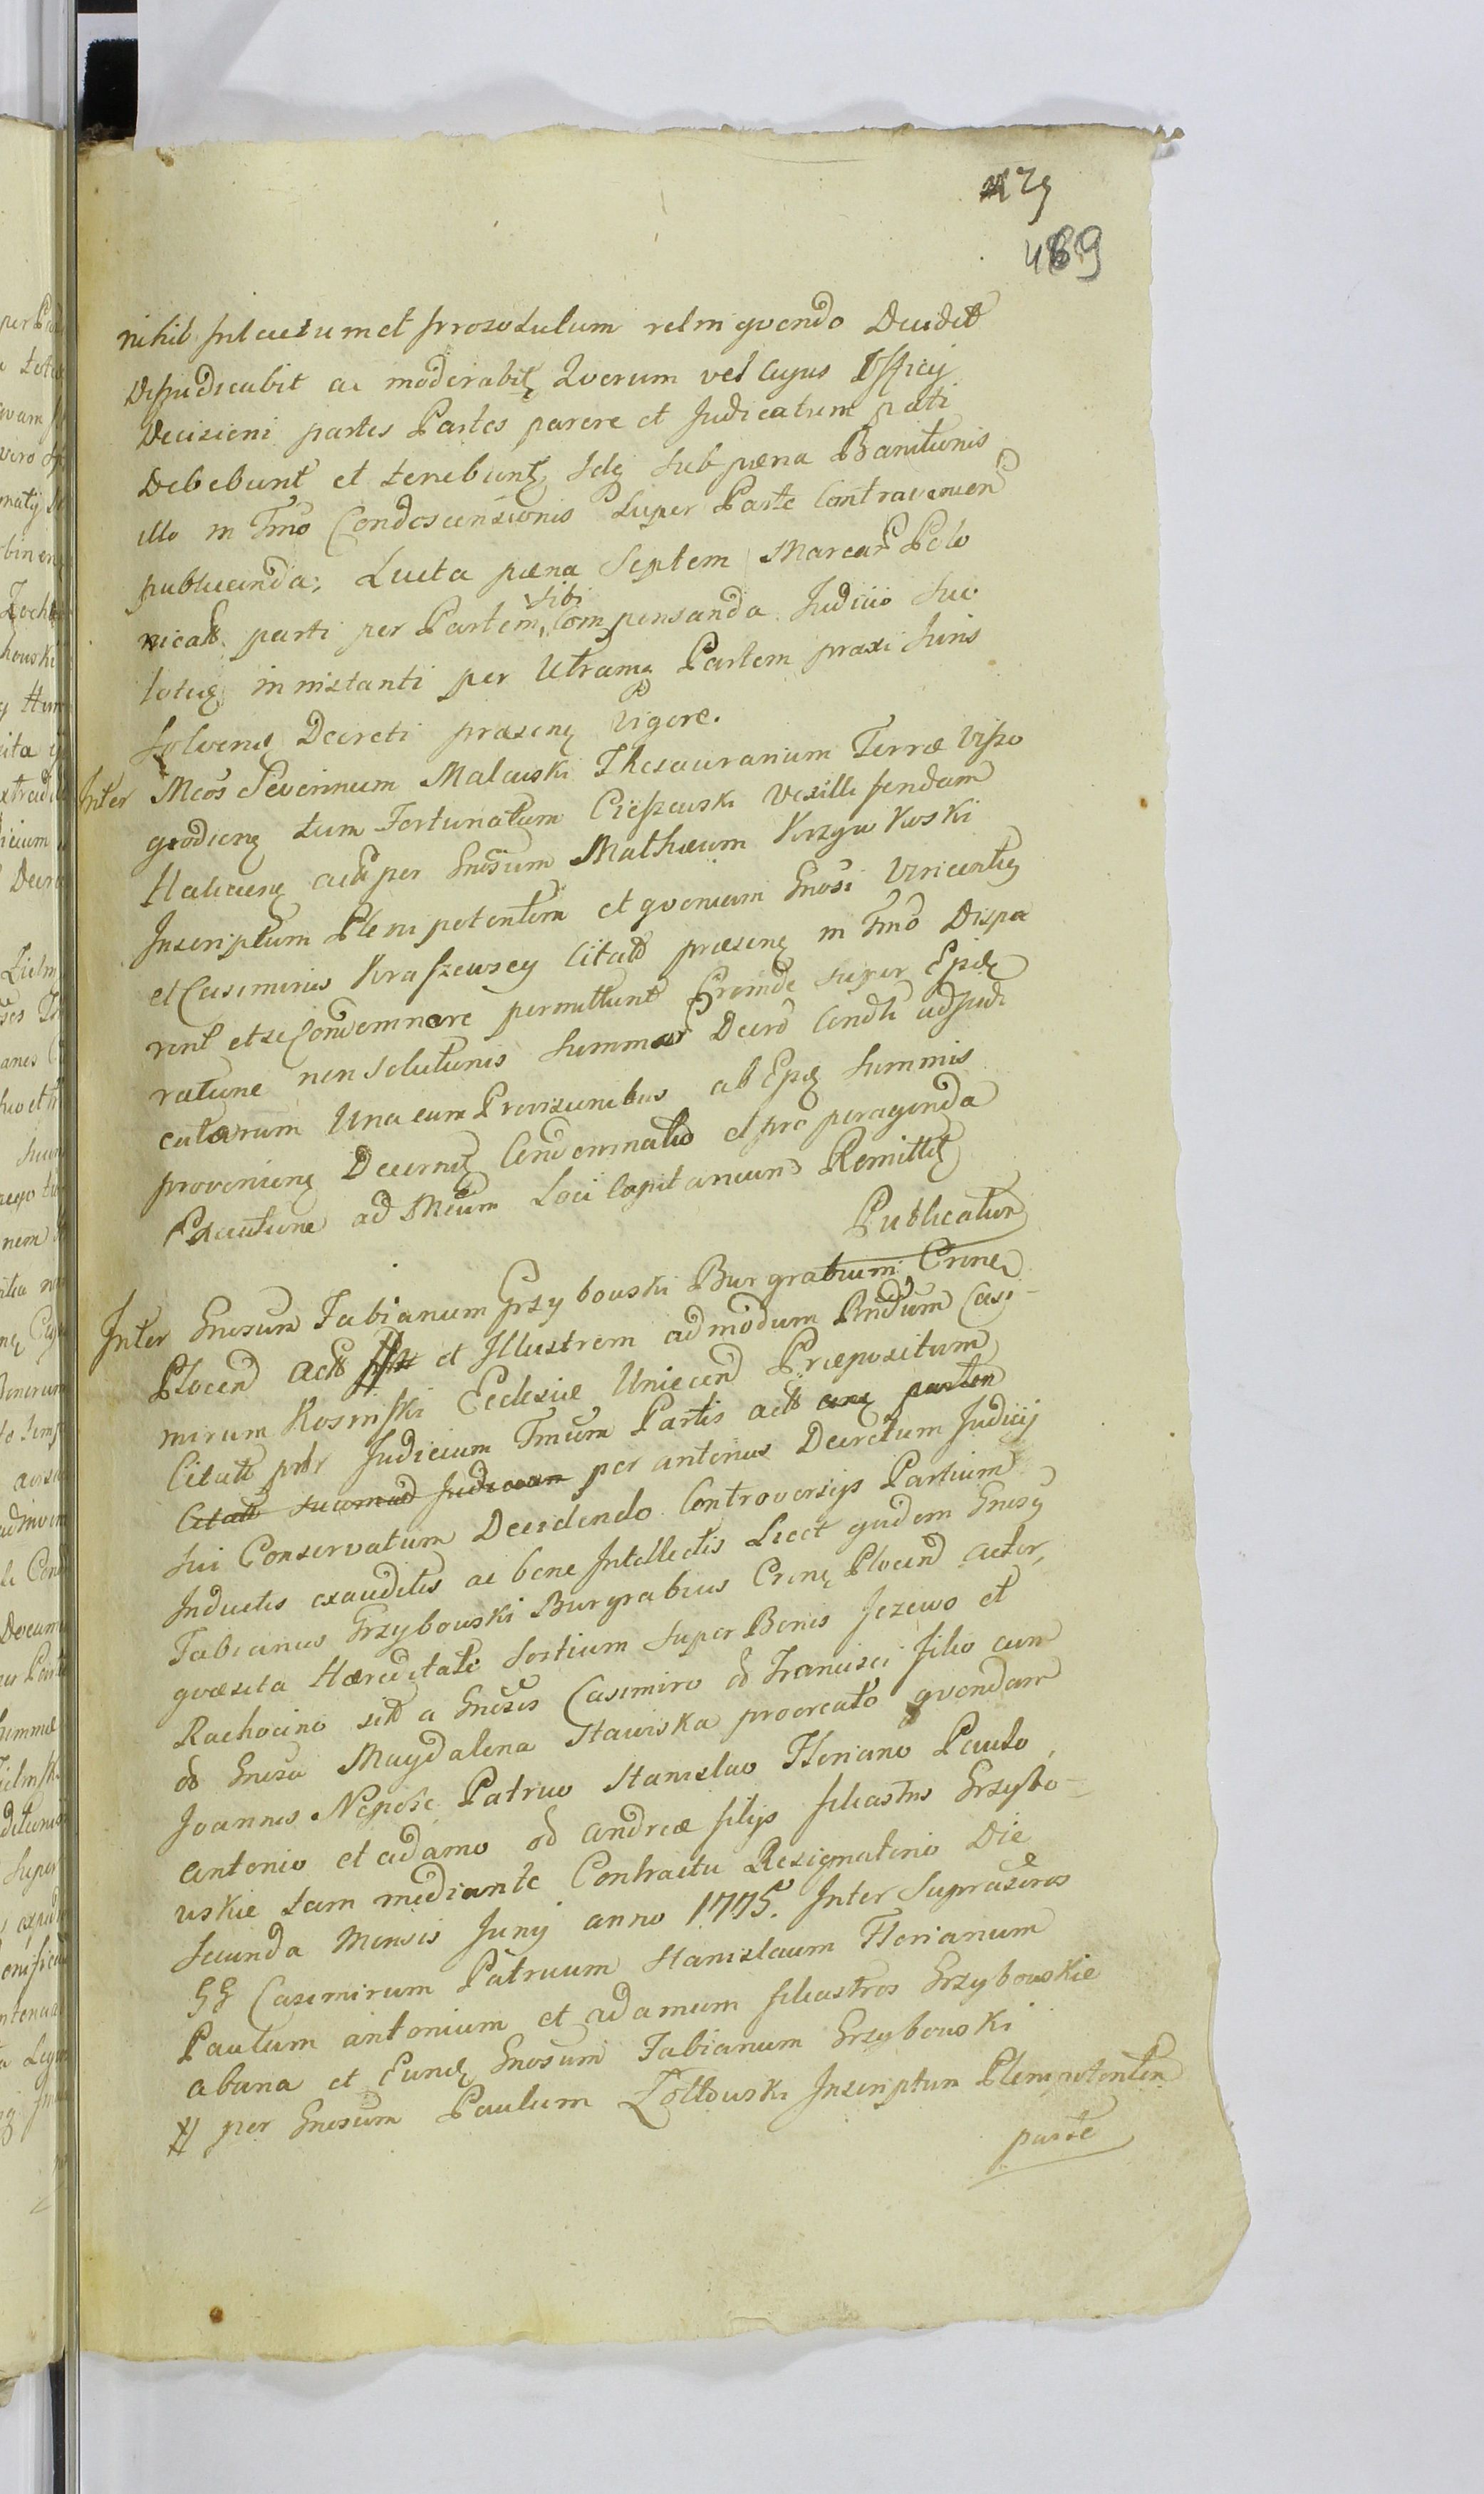 29
489
nihil intactum et prosolutum relinquendo Decidet
Disjudicabit ac moderabit Quorum vel Cujus Officij
Decisioni partes Partes parere et Judicatum pati
Debebunt et tenebunt Idq sub pœna Banitionis
illo in Tmo Condescensionis super Parte Contravenien
publicanda; Lucta pœna Septem Marcar Polo
nicall parti per Partem sibi Compensanda Judicio suo
totuq in instanti per Utramq Partem praxi Juris
solvend Decreti præsenq Vigore.
Inter Mcos Severinum Malewski Thesaurarium Terræ Viszo
grodienq tum Fortunatum Cieszewski Vexilliferidam
Haliciens act per Gnosum Mathæum Krzywkoski
Inscriptum Plenipotentem et quoniam Gnosi Vincentig
et Casimirus Kraszewscy Citatt præsenq in Tmo Dispa
rent et se Condemnare permittunt Proinde super Epdq
ratione non solutionis summar Decro Condli adjudi
catarum Una cum Provisionibus ab Epdq Summis
provenienq Decernit Condemnatio et pro peragenda
Executione ad Mcum Loci Capitaneum Remittit
Publicatum
Inter Gnosum Fabianum Grzybowski Burgrabium Crenem
Plocen act et Illustrem admodum Rndum Casi-
mirum Kosinski Ecclesiæ Uniecen Præpositum
Citatt prtr Judicium Tmum Partis act anq parten
Citatt Judicium per anterius Decretum Judicij
sui Conservatum Decidendo Controversijs Partium
Inductis exauditis ac bene Intellectis Licet quidem Gnosg
Fabianus Grzybowski Burgrabius Crenq Plocen actor,
quæsita Hæreditate Sortium super Bonis Jezewo et
Rachocino sitt a Gnosis Casimiro od Francisci filio cum
od Gnosa Magdalena Stawiska procreato quondam
Joannis Nepote Patruo Stanislao Floriano Paulo,
Antonio et adamo od Andreæ filijs filiastris Grzybo-
wskie tam mediante Contractu Resignatorio Die
secunda Mensis Junij anno 1775. Inter Suprascros
GG Casimirum Patruum Stanislaum Florianum
Paulum antonium et adamum filiastros Grzybowskie
abuna et Eundq Gnosum Fabianum Grzybowski
# per Gnosum Paulum Zottowski Inscriptum Plenipotentem
parte